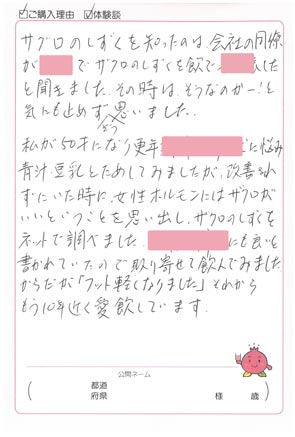 ☑ご購入理由 ☑体験談
ザクロのしずくを知ったのは、会社の同僚
が でザクロのしずくを飲んで した
と聞きました。その時は、そうなのかー!と
気にも止めず思いました。
そう
私が50才になり更年 に悩み
青汁・豆乳とためしてみましたが、改善され
ずにいた時に、女性ホルモンにはザクロが
いいということを思い出し、ザクロのしずくを
ネットで調べました。 にも良いと
書かれていたので取り寄せて飲んでみました。
からだが「フット軽くなりました」それから
もう10年近く愛飲しています。
公開ネーム
( 都道
府県 様 歳)